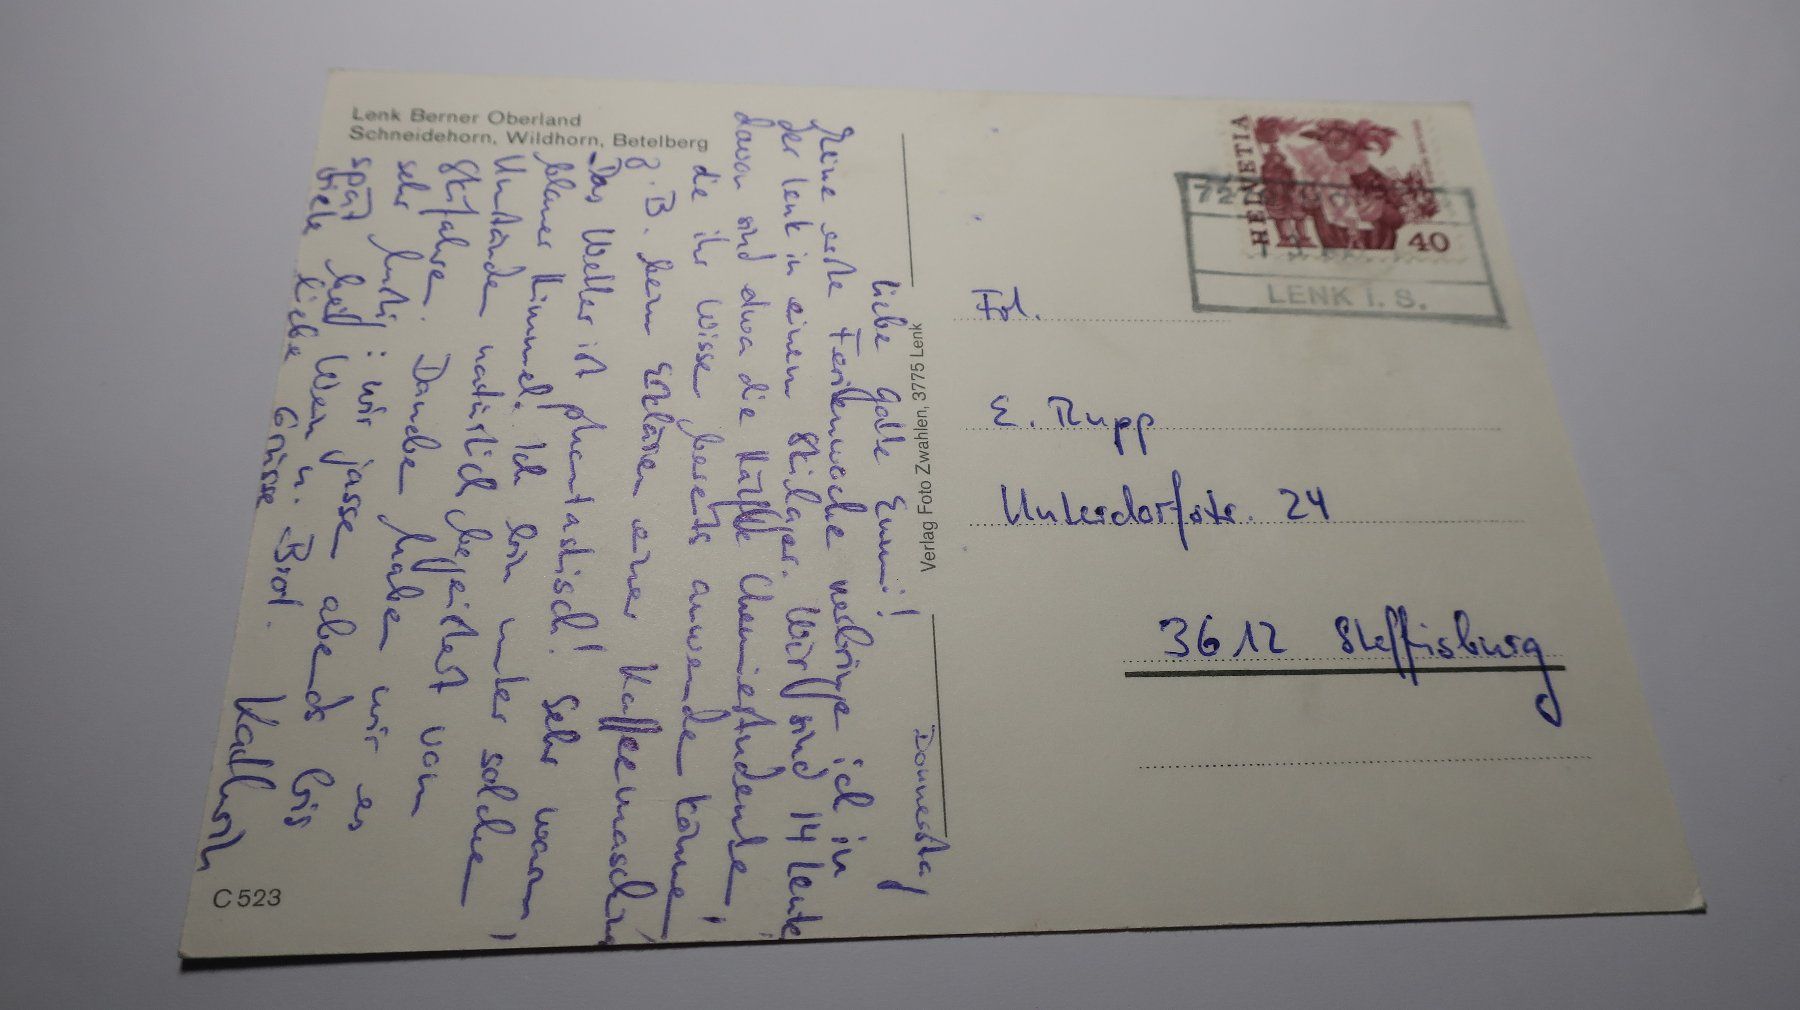 Lenk Berner Oberland
Schneidehorn, Wildhorn, Betelberg
Donnerstag
Liebe Gotte Emmi!
Meine erste Ferienwoche verbringe ich in
der Lenk in einem Skilager. Wir sind 14 Leute
davon sind etwa die Hälfte Chemiestudenten,
die ihr Wissen bereits anwenden können
z.B. beim Erklären einer Kaffeemaschine!
Das Wetter ist phantastisch! Sehr warm,
blauer Himmel: Ich bin unter solchen
Umständen natürlich begeistert vom
Skifahren. Daneben haben wir es
sehr lustig: wir jassen abends bis
spät bei Wein u. Brot.
viele liebe Grüsse Kathrin
C 523
Verlag Foto Zwahlen, 3775 Lenk
HELVETIA
40
LENK i. S.
Frl.
E. Rupp
Unterdorfstr. 24
3612 Steffisburg